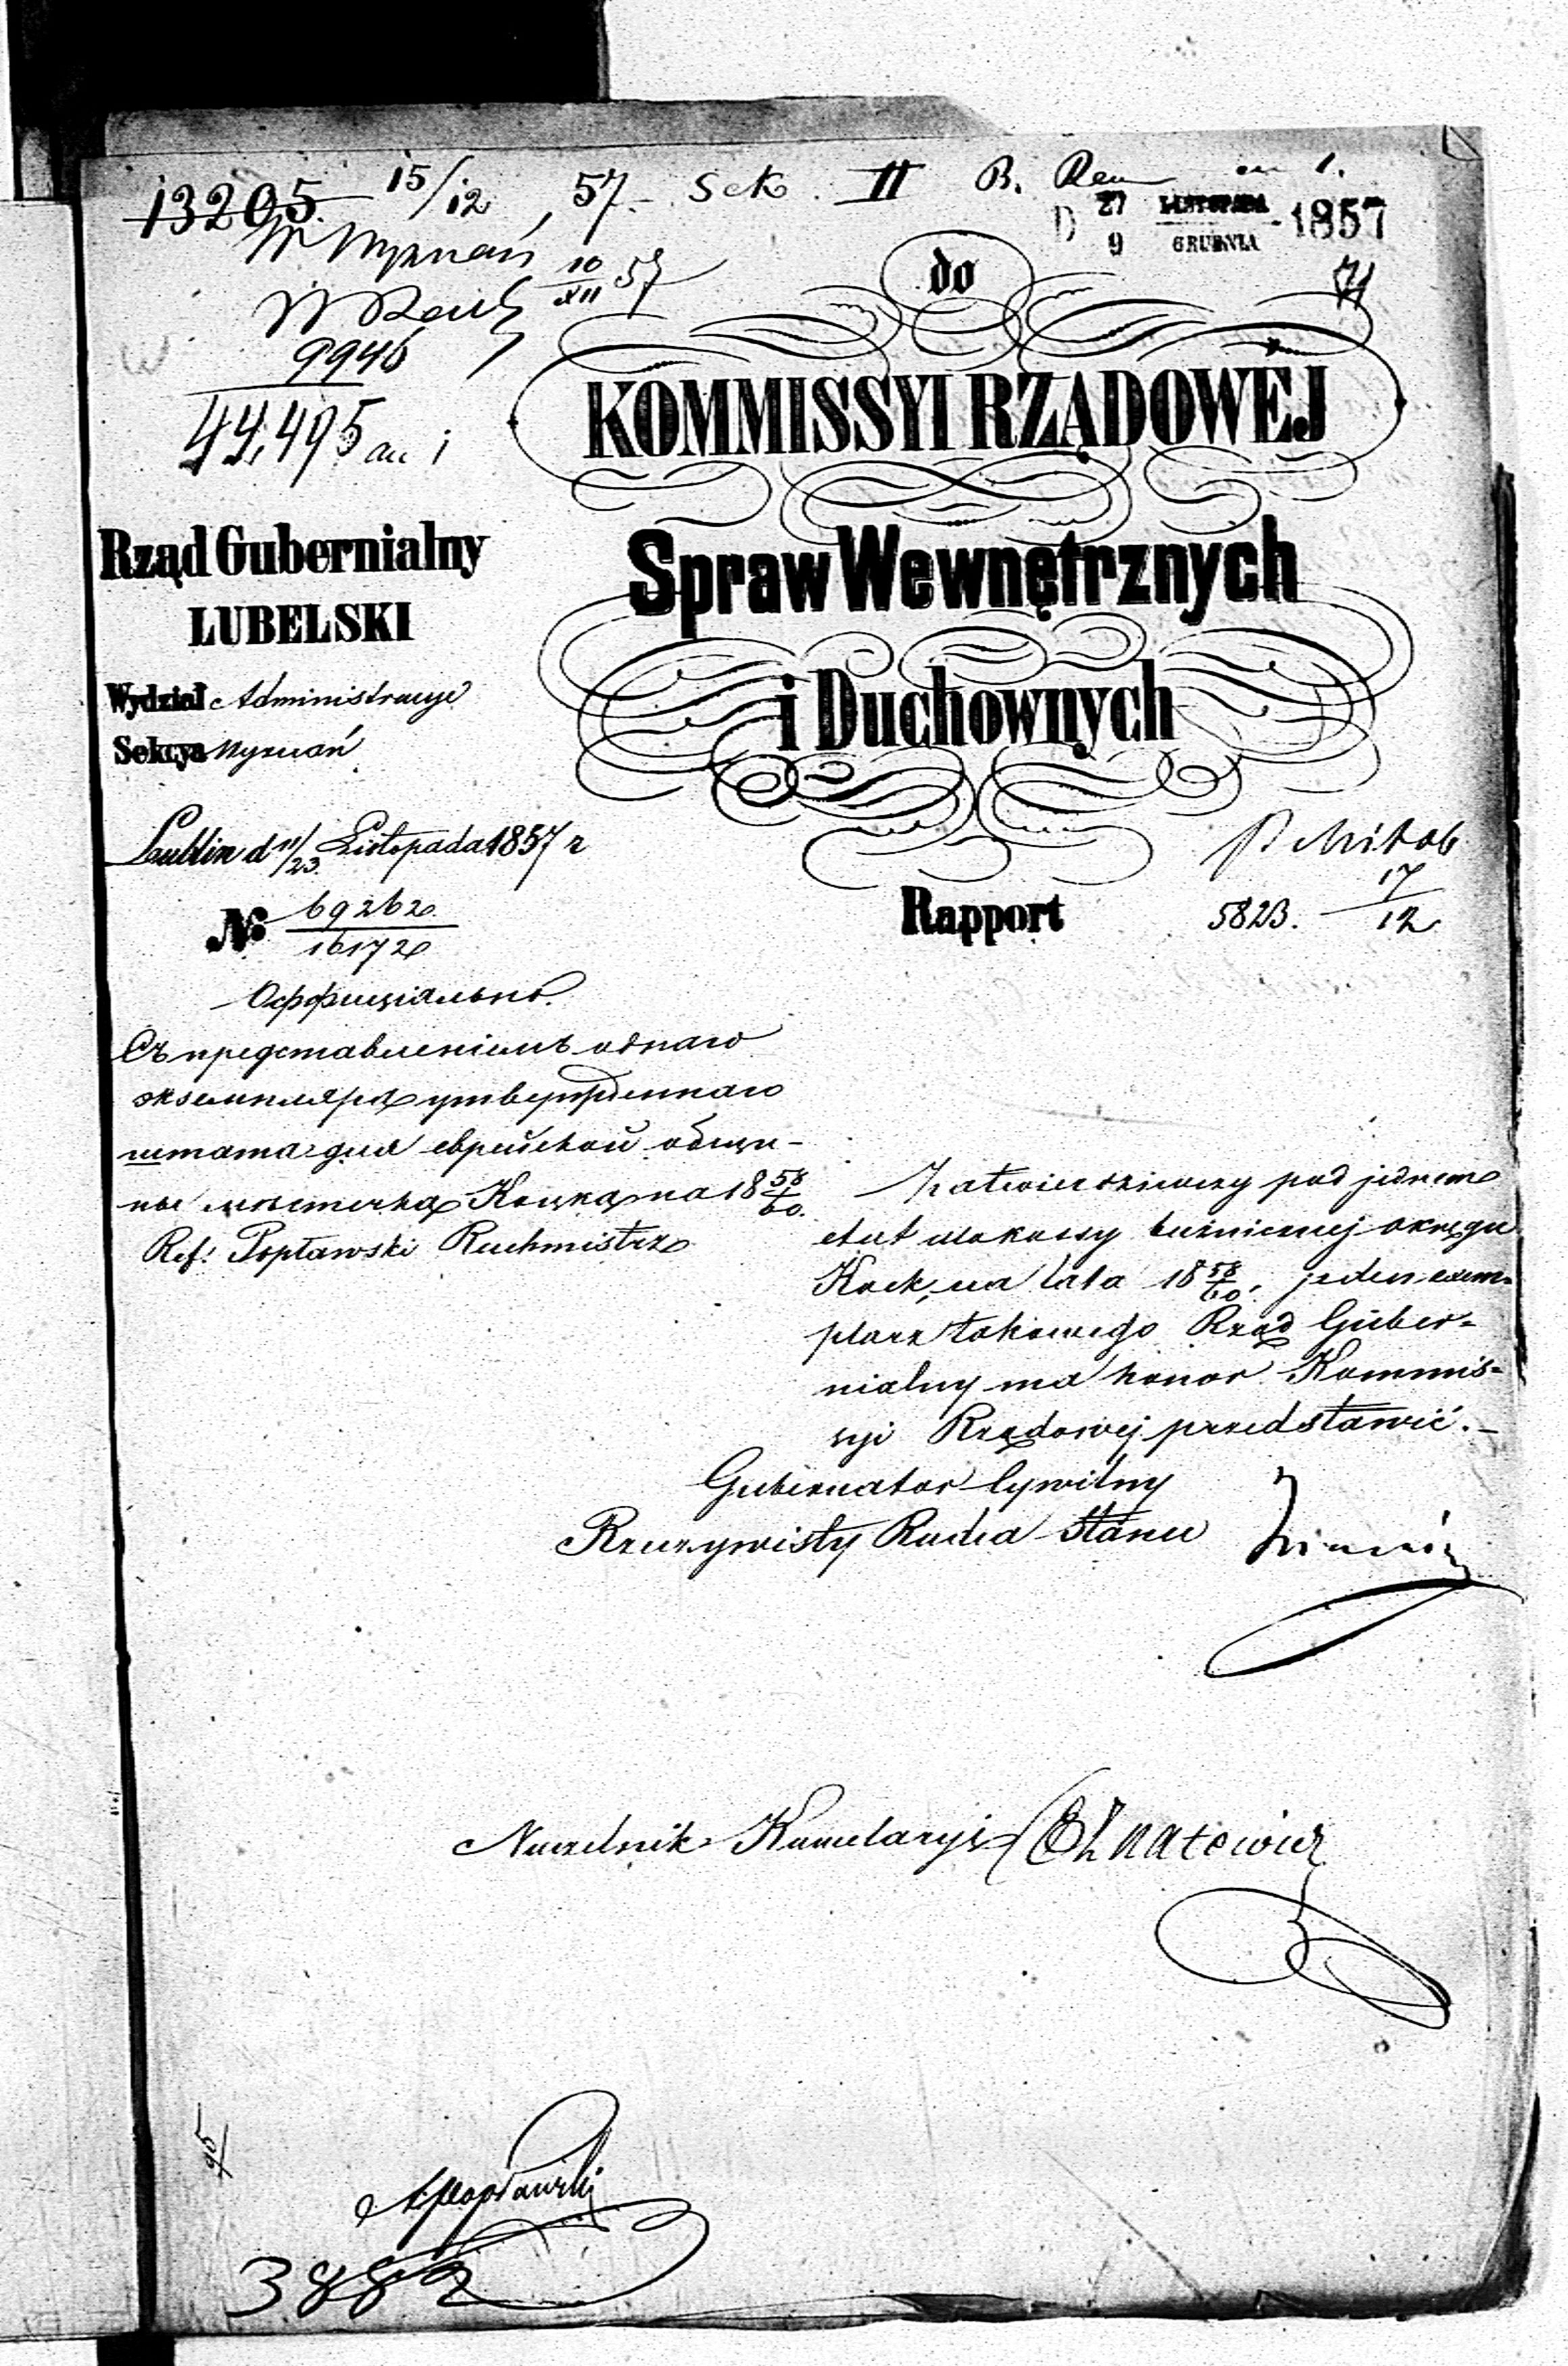 13205. 15/12 57. Sek. II B.
D 27/9 LISTOPADA/GRUDNIA 1857
W Wyznań 10/XII 57
W
9946
44,495
do
KOMMISSYI RZĄDOWEJ
Spraw Wewnętrznych
i Duchownych
Rząd Gubernialny
LUBELSKI
Wydział Administracyi
Sekcya Wyznań
Lublin d 11/23 Listopada 1857 r
№ 69262/16172
Rapport
5823. 17/12
Оффиціально.
Съ представленіемъ однаго
экземпляра утвержденнаго
штата для еврейской общи-
ны мѣстечка Коцка на 18 58/60.
Ref. Popławski Rachmistrz
Zatwierdziwszy pod jednem
etat dla kassy bużnicznej okręgu
Kock, na lata 18 58/60, jeden exem-
plarz takowego Rząd Guber-
nialny ma honor Kommis-
syi Rządowej przedstawić.
Gubernator Cywilny
Rzeczywisty Radca Stanu
Naczelnik Kancelaryi
APopławski
3882